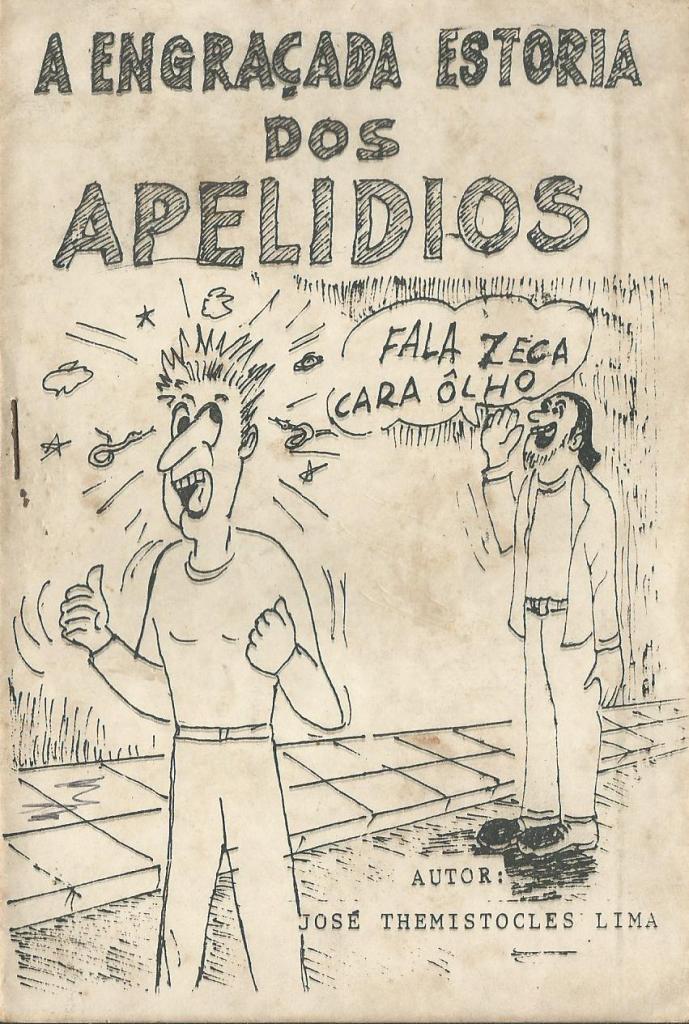 A ENGRAÇADA ESTORIA
DOS
APELIDIOS
FALA ZECA
CARA ÔLHO
AUTOR:
JOSÉ THEMISTOCLES LIMA